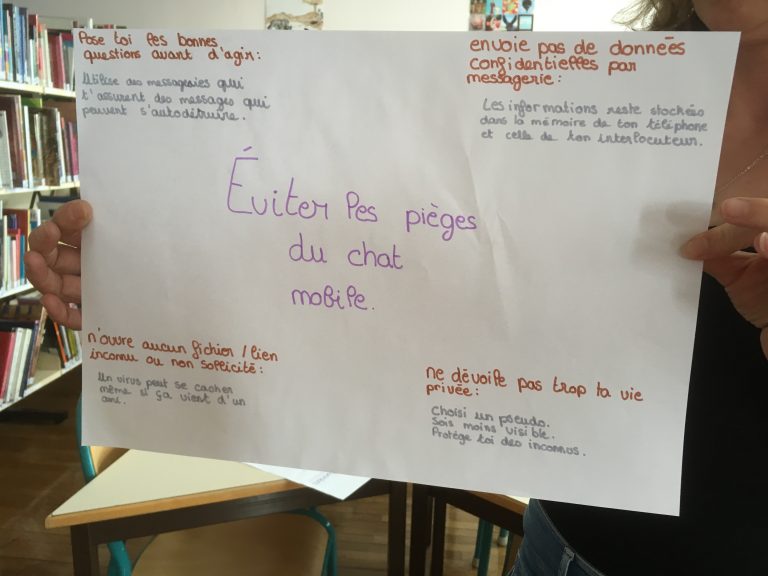 Pose toi les bonnes
questions avant d'agir :
Utilise des messageries qui
t'assurent des messages qui
peuvent s'autodétruire.
envoie pas de données
confidentielles par
messagerie :
Les informations reste stockées
dans la mémoire de ton téléphone
et celle de ton interlocuteur.
Éviter les pièges
du chat
mobile.
n'ouvre aucun fichier / lien
inconnu ou non sollicité :
Un virus peut se cacher
même si ça vient d'un
ami.
ne dévoile pas trop ta vie
privée :
Choisi un pseudo.
Sois moins visible.
Protège toi des inconnus.